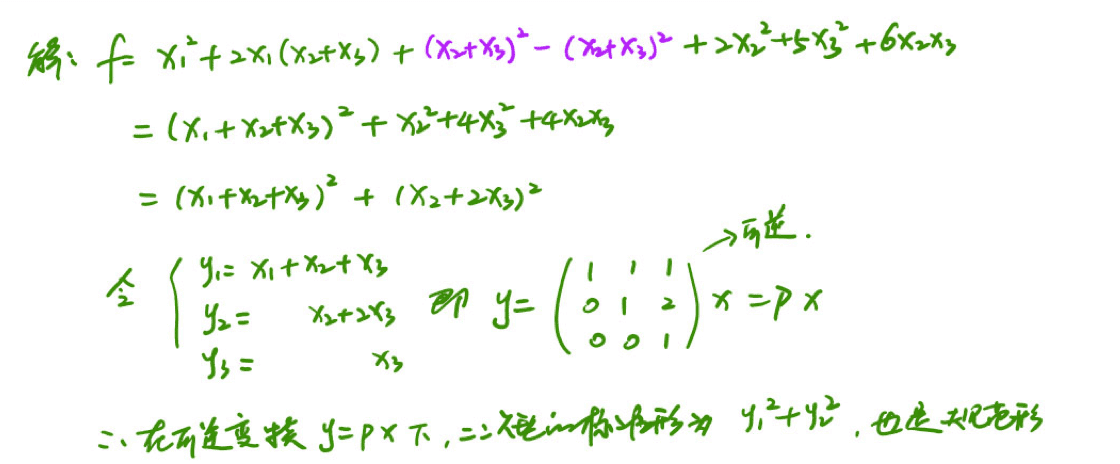 解: f = x₁² + 2x₁(x₂+x₃) + (x₂+x₃)² - (x₂+x₃)² + 2x₂² + 5x₃² + 6x₂x₃
= (x₁+x₂+x₃)² + x₂² + 4x₃² + 4x₂x₃
= (x₁+x₂+x₃)² + (x₂+2x₃)²
→可逆.
令 { y₁ = x₁+x₂+x₃ 即 y = ( 1 1 1 ; 0 1 2 ; 0 0 1 ) x = Px
y₂ = x₂+2x₃
y₃ = x₃
∴ 在可逆变换 y=Px 下, 二次型的标准形为 y₁²+y₂², 也是规范形